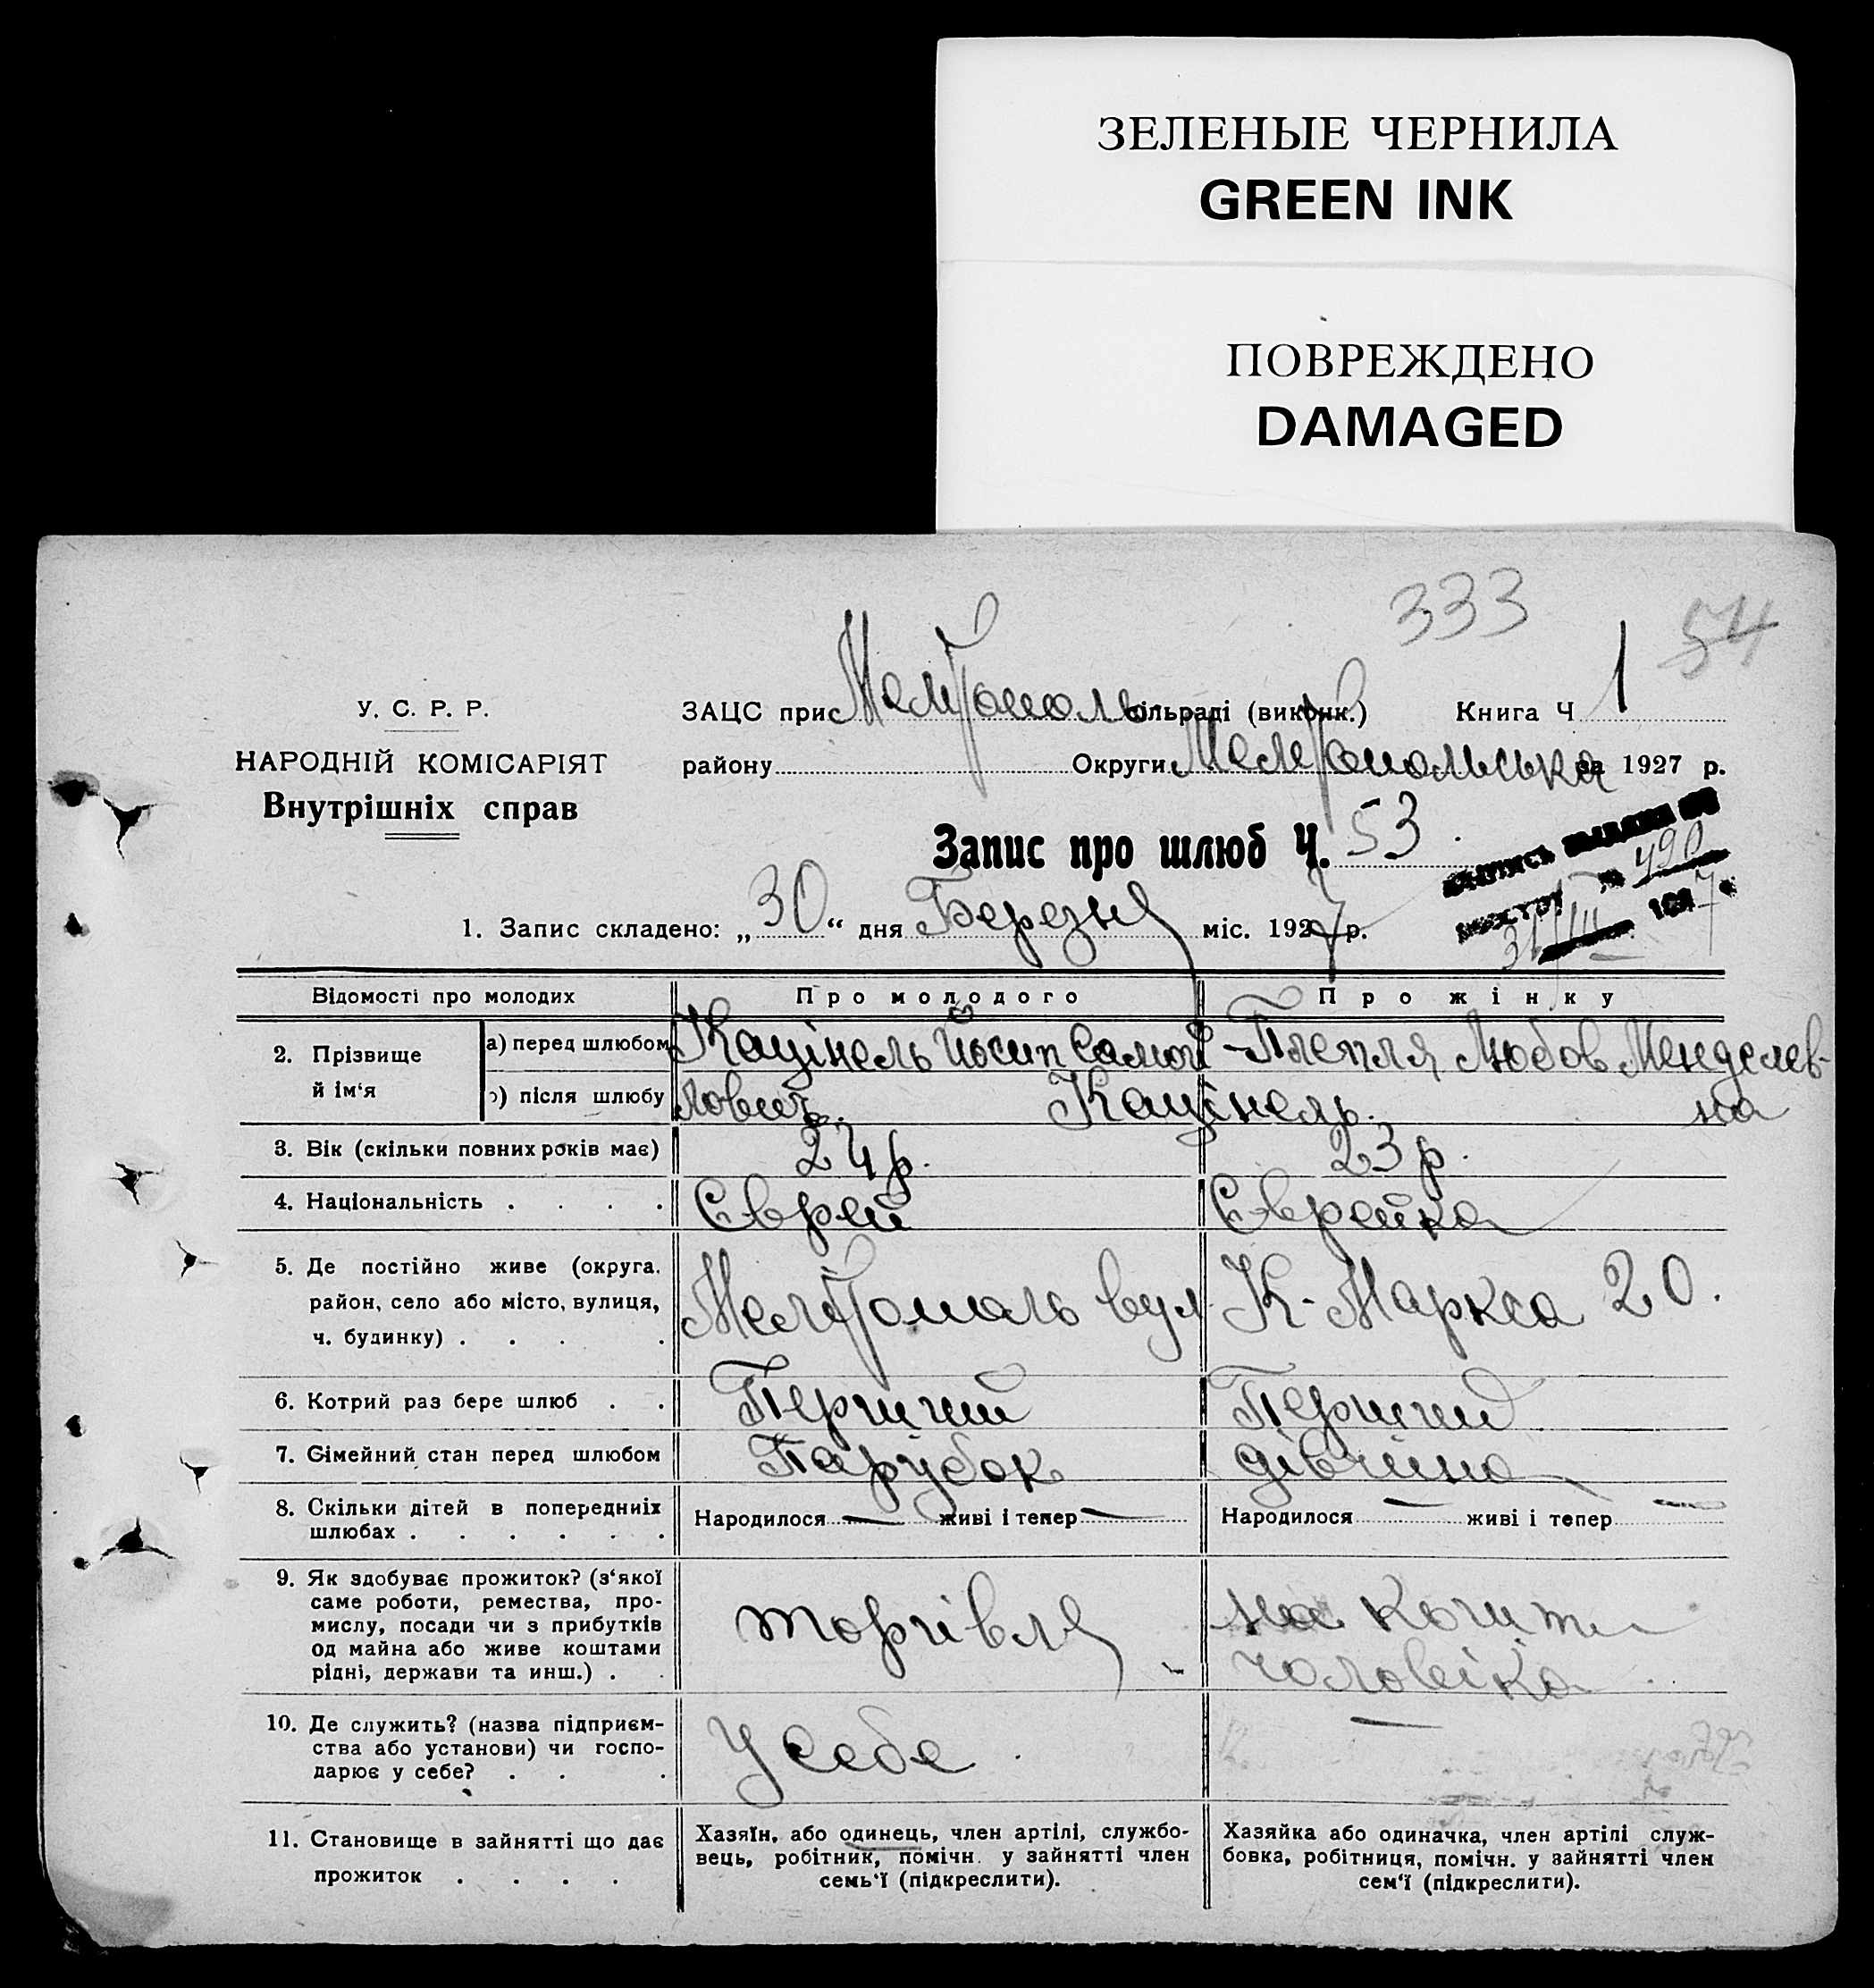 ЗЕЛЕНЫЕ ЧЕРНИЛА
GREEN INK
ПОВРЕЖДЕНО
DAMAGED
333
54
У. С. Р. Р.
НАРОДНІЙ КОМІСАРІЯТ
Внутрішніх справ
ЗАЦС при Мелітополь сільраді (виконк.) Книга Ч 1
району Округи Мелітопольська за 1927 р.
Запис про шлюб Ч. 53
№ 490
31/III 1927
1. Запис складено: „30“ дня Березня міс. 1927 р.
Відомості про молодих Про молодого Про жінку
2. Прізвище й ім‘я
а) перед шлюбом Кацінель Йосип Самой- Теппля Любов Менделев-
б) після шлюбу ловичь. Кацінель. на
3. Вік (скільки повних років має) 24 р. 23 р.
4. Національність . . . . Єврей Єврейка
5. Де постійно живе (округа,
район, село або місто, вулиця,
ч. будинку) . . . . Мелітополь вул К. Маркса 20.
6. Котрий раз бере шлюб . . Перший Перший
7. Сімейний стан перед шлюбом Парубок дівчина
8. Скільки дітей в попередниіх
шлюбах . . . . . . Народилося — живі і тепер — Народилося — живі і тепер —
9. Як здобуває прожиток? (з‘якої
саме роботи, ремества, про-
мислу, посади чи з прибутків
од майна або живе коштами
рідні, держави та инш.) . . торгівля на кошти
чоловіка
10. Де служить? (назва підприєм-
ства або установи) чи госпо-
дарює у себе? . . . У себе —
11. Становище в зайнятті що дає
прожиток . . . .
Хазяїн, або одинець, член артілі, службо-
вець, робітник, помічн. у зайнятті член
семь‘ї (підкреслити).
Хазяйка або одиначка, член артілі служ-
бовка, робітниця, помічн. у зайнятті член
сем‘ї (підкреслити).